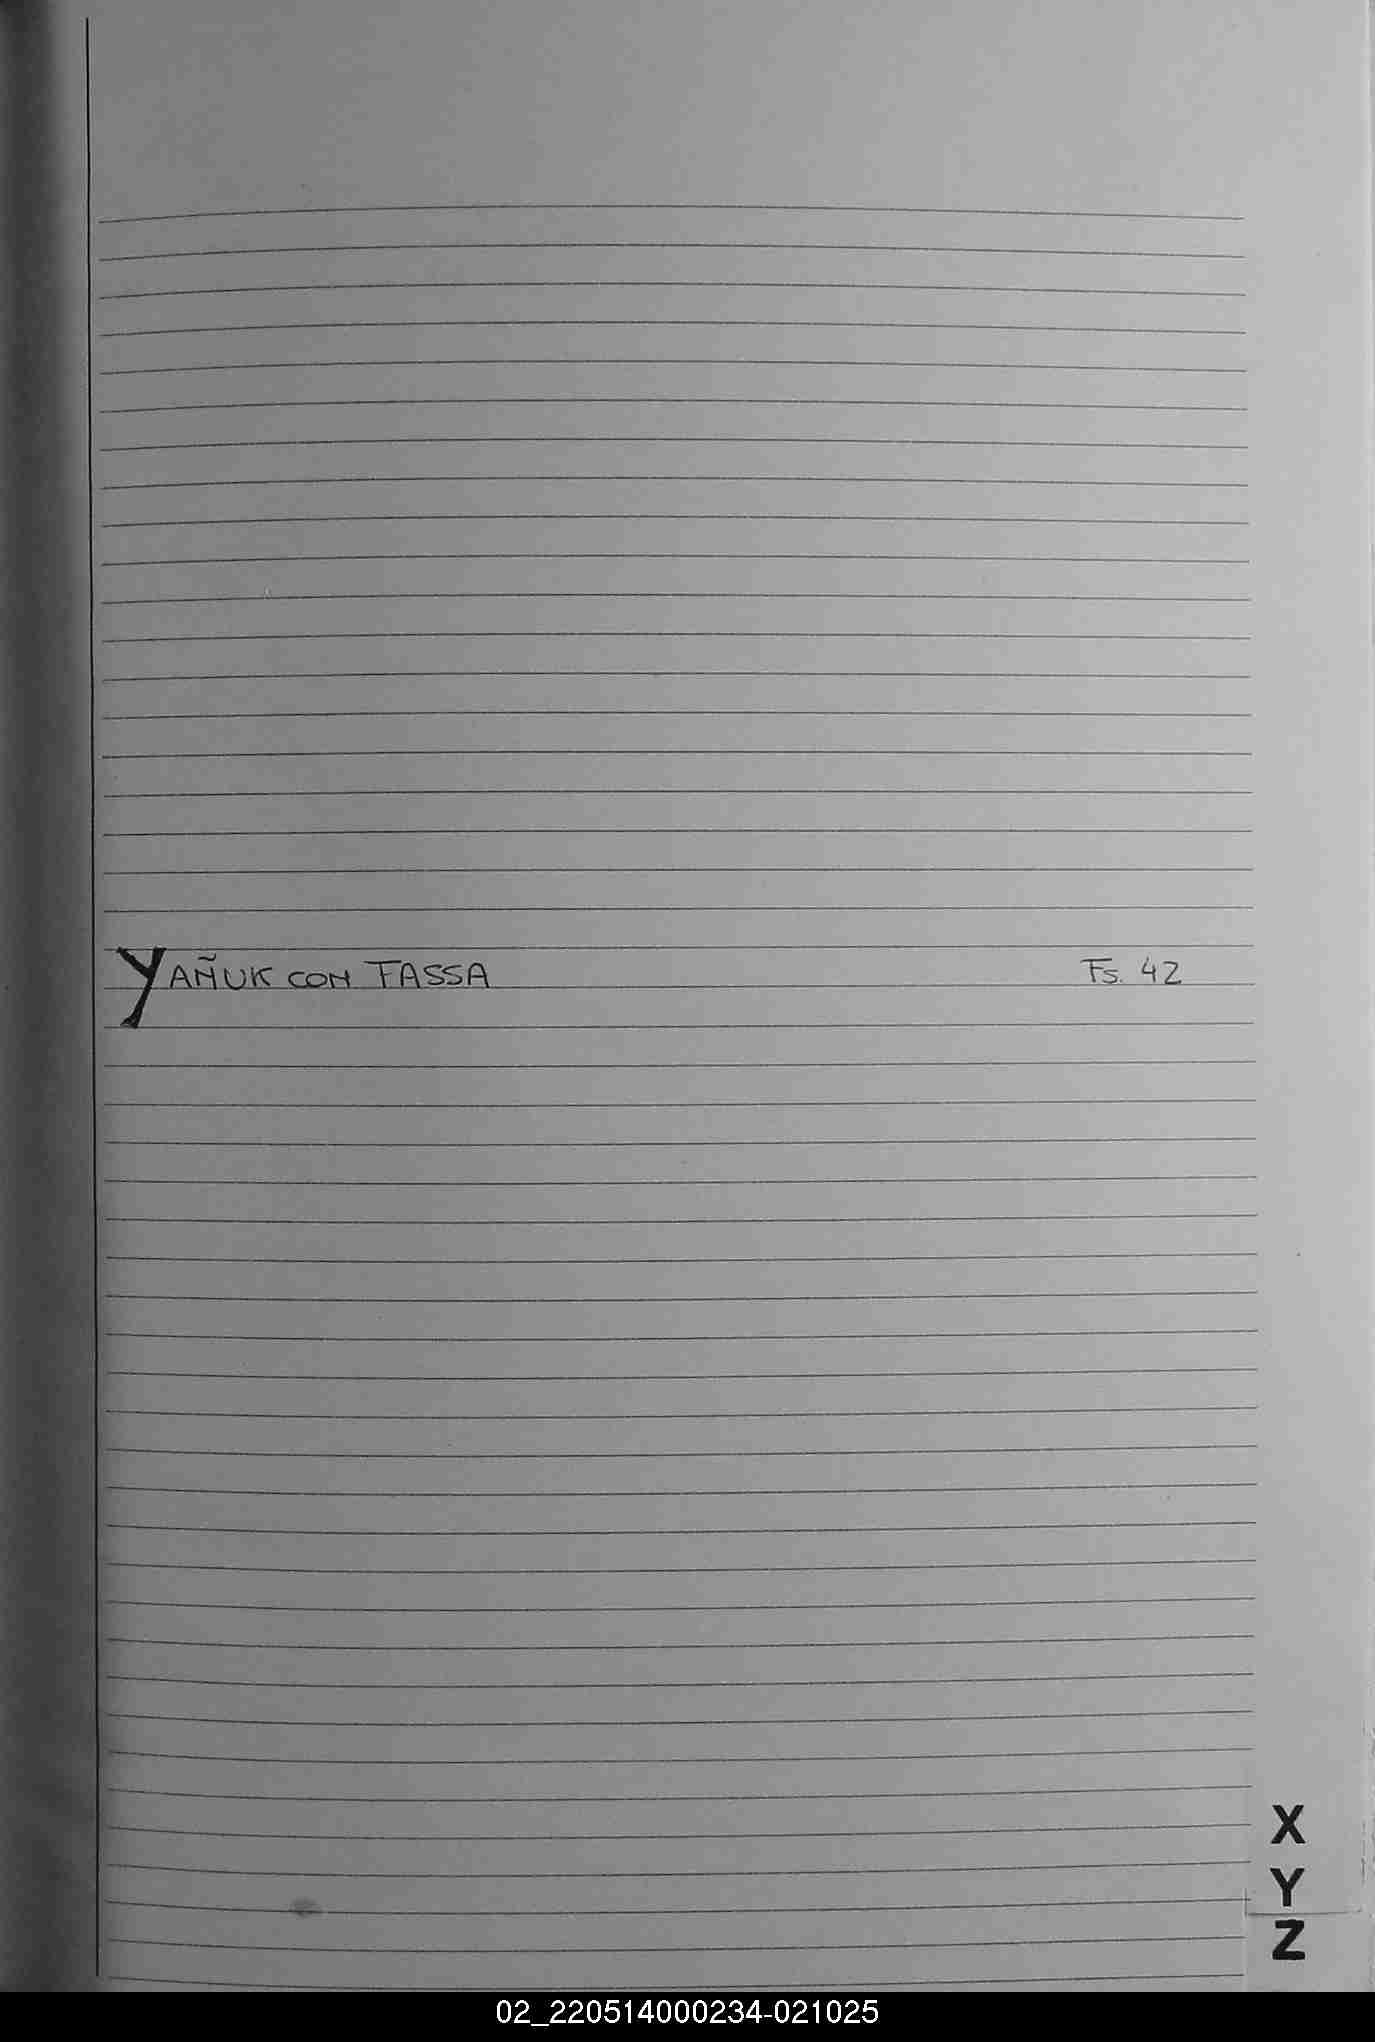 YAÑUK CON TASSA Fs. 42
X
Y
Z
02_220514000234-021025